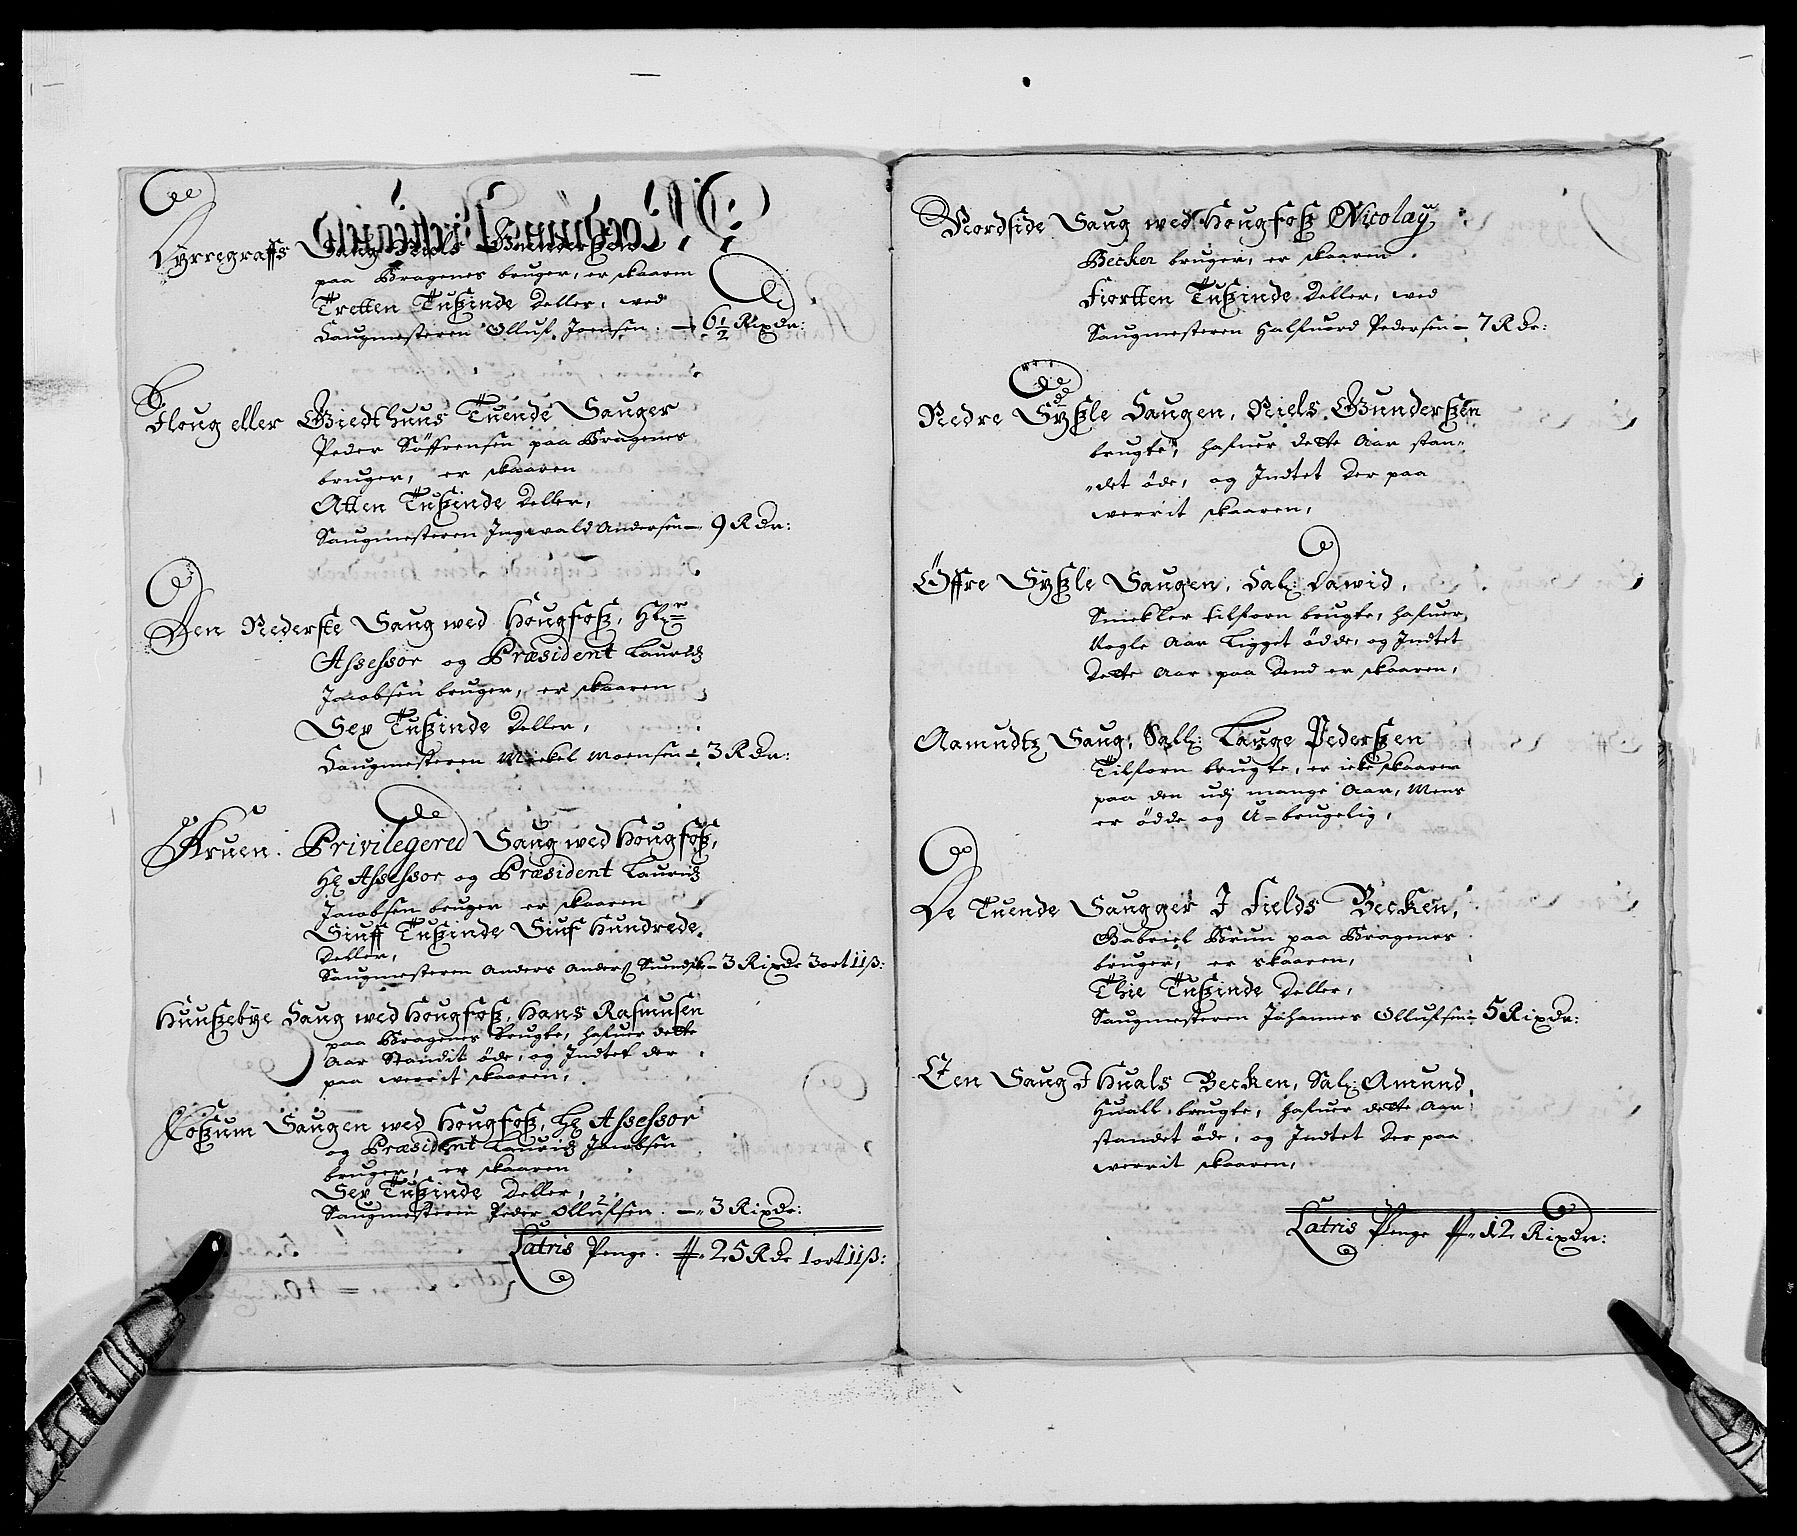 Kyrregraffs Saug Niels Gundersen
paa Bragenes bruger, er skaaren
Tretten Tußinde Deller, wed
Saugmesteren Olluf Joensen. — 6½ Rixdr:
Floug eller Giedthuus Tuende Sauger
Peder Söffrensen paa Bragenes
bruger, er skaaren
Atten Tußinde Deller,
Saugmesteren Ingwald Andersen — 9 Rdr:
Den Nederste Saug wed Hougfoß, Hr
Assessor og Præsident Lauridz
Jacobsen bruger, er skaaren
Sex Tußinde Deller,
Saugmesteren Mickel Moensen — 3 Rdr:
Kruen Privilegered Saug wed Hougfoß,
Hr Assessor og Præsident Lauridz
Jacobsen bruger er skaaren
Siuff Tußinde Siuf Hundrede
Deller,
Saugmesteren Anders Anderß — 3 Rixdr 3 ort 11 ß:
Huußebye Saug wed Hougfoß, Hans Rasmusen
paa Bragenes brugte, hafuer dette
Aar Standit öde, og Indtet der
paa werrit skaaren,
Foßum Saugen wed Hougfoß, Hr Assessor
og Præsident Lauridz Jacobsen
bruger, er skaaren
Sex Tußinde Deller,
Saugmesteren Peder Ollufsen. — 3 Rixdr:
Latris Penge. 25 Rdr 1 ort 11 ß:
Nordside Saug wed Hougfoß Nicolay
Becker bruger, er skaaren
Fiortten Tußinde Deller, wed
Saugmesteren Halfuord Pedersen — 7 Rdr:
Nedre Sÿßle Saugen, Niels Gunderßen
brugte, hafuer dette Aar stan-
det öde, og Indtet der paa
werrit skaaren,
Öffre Sÿßle Saugen, Sal: Dawid
Sneckler tilforn brugte, hafuer
Nogle Aar Ligget ödde, og Indtet
Dette Aar paa dend er skaaren,
Aamundtz Saug, Sall: Lauge Pederßen
Tilforn brugte, er icke skaaren
paa den udj mange Aar, Mens
er ödde og U-brugelig,
De Tuende Saugger I Fields Becken,
Gabriel Brun paa Bragenes
bruger, er skaaren,
Thie Tußinde Deller,
Saugmesteren Johannes Ollufsen — 5 Rixdr:
Een Saug I Huals Becken, Sal: Amund
Huall brugte, hafuer dette Aar
standet öde, og Indtet der paa
werrit skaaren,
Latris Penge 12 Rixdr: